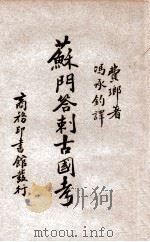 費瑯著
馮承鈞譯
蘇門答剌古國考
商務印書館發行